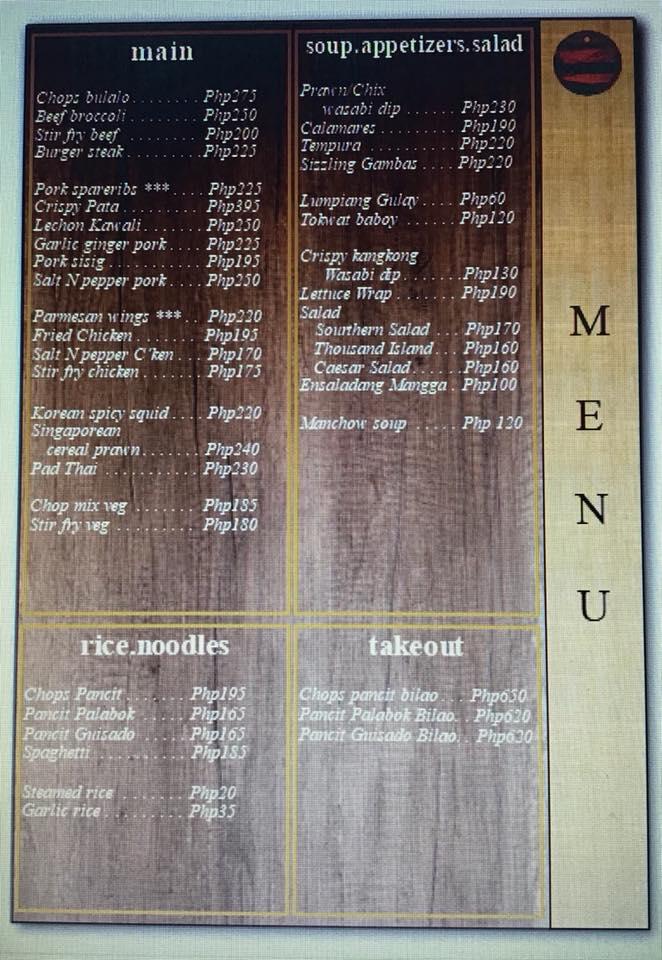 main
Chops bulalo ........ Php275
Beef broccoli ....... Php250
Stir fry beef ........ Php200
Burger steak ......... Php225
Pork spareribs *** .... Php225
Crispy Pata .......... Php395
Lechon Kawali ....... Php250
Garlic ginger pork .... Php225
Pork sisig ............ Php195
Salt N pepper pork .... Php250
Parmesan wings *** .. Php220
Fried Chicken ........ Php195
Salt N pepper C'ken ... Php170
Stir fry chicken ....... Php175
Korean spicy squid .... Php220
Singaporean
cereal prawn ....... Php240
Pad Thai ........... Php230
Chop mix veg ....... Php185
Stir fry veg ......... Php180
soup.appetizers.salad
Prawn/Chix
wasabi dip ...... Php230
Calamares ......... Php190
Tempura .......... Php220
Sizzling Gambas .... Php220
Lumpiang Gulay .... Php60
Tokwat baboy ...... Php120
Crispy kangkong
Wasabi dip ....... Php130
Lettuce Wrap ....... Php190
Salad
Sourthern Salad ... Php170
Thousand Island ... Php160
Caesar Salad ...... Php160
Ensaladang Mangga . Php100
Manchow soup ..... Php 120
rice.noodles
Chops Pancit ....... Php195
Pancit Palabok ..... Php165
Pancit Guisado ..... Php165
Spaghetti .......... Php185
Steamed rice ....... Php20
Garlic rice ......... Php35
takeout
Chops pancit bilao ... Php650
Pancit Palabok Bilao .. Php620
Pancit Guisado Bilao .. Php620
M
E
N
U